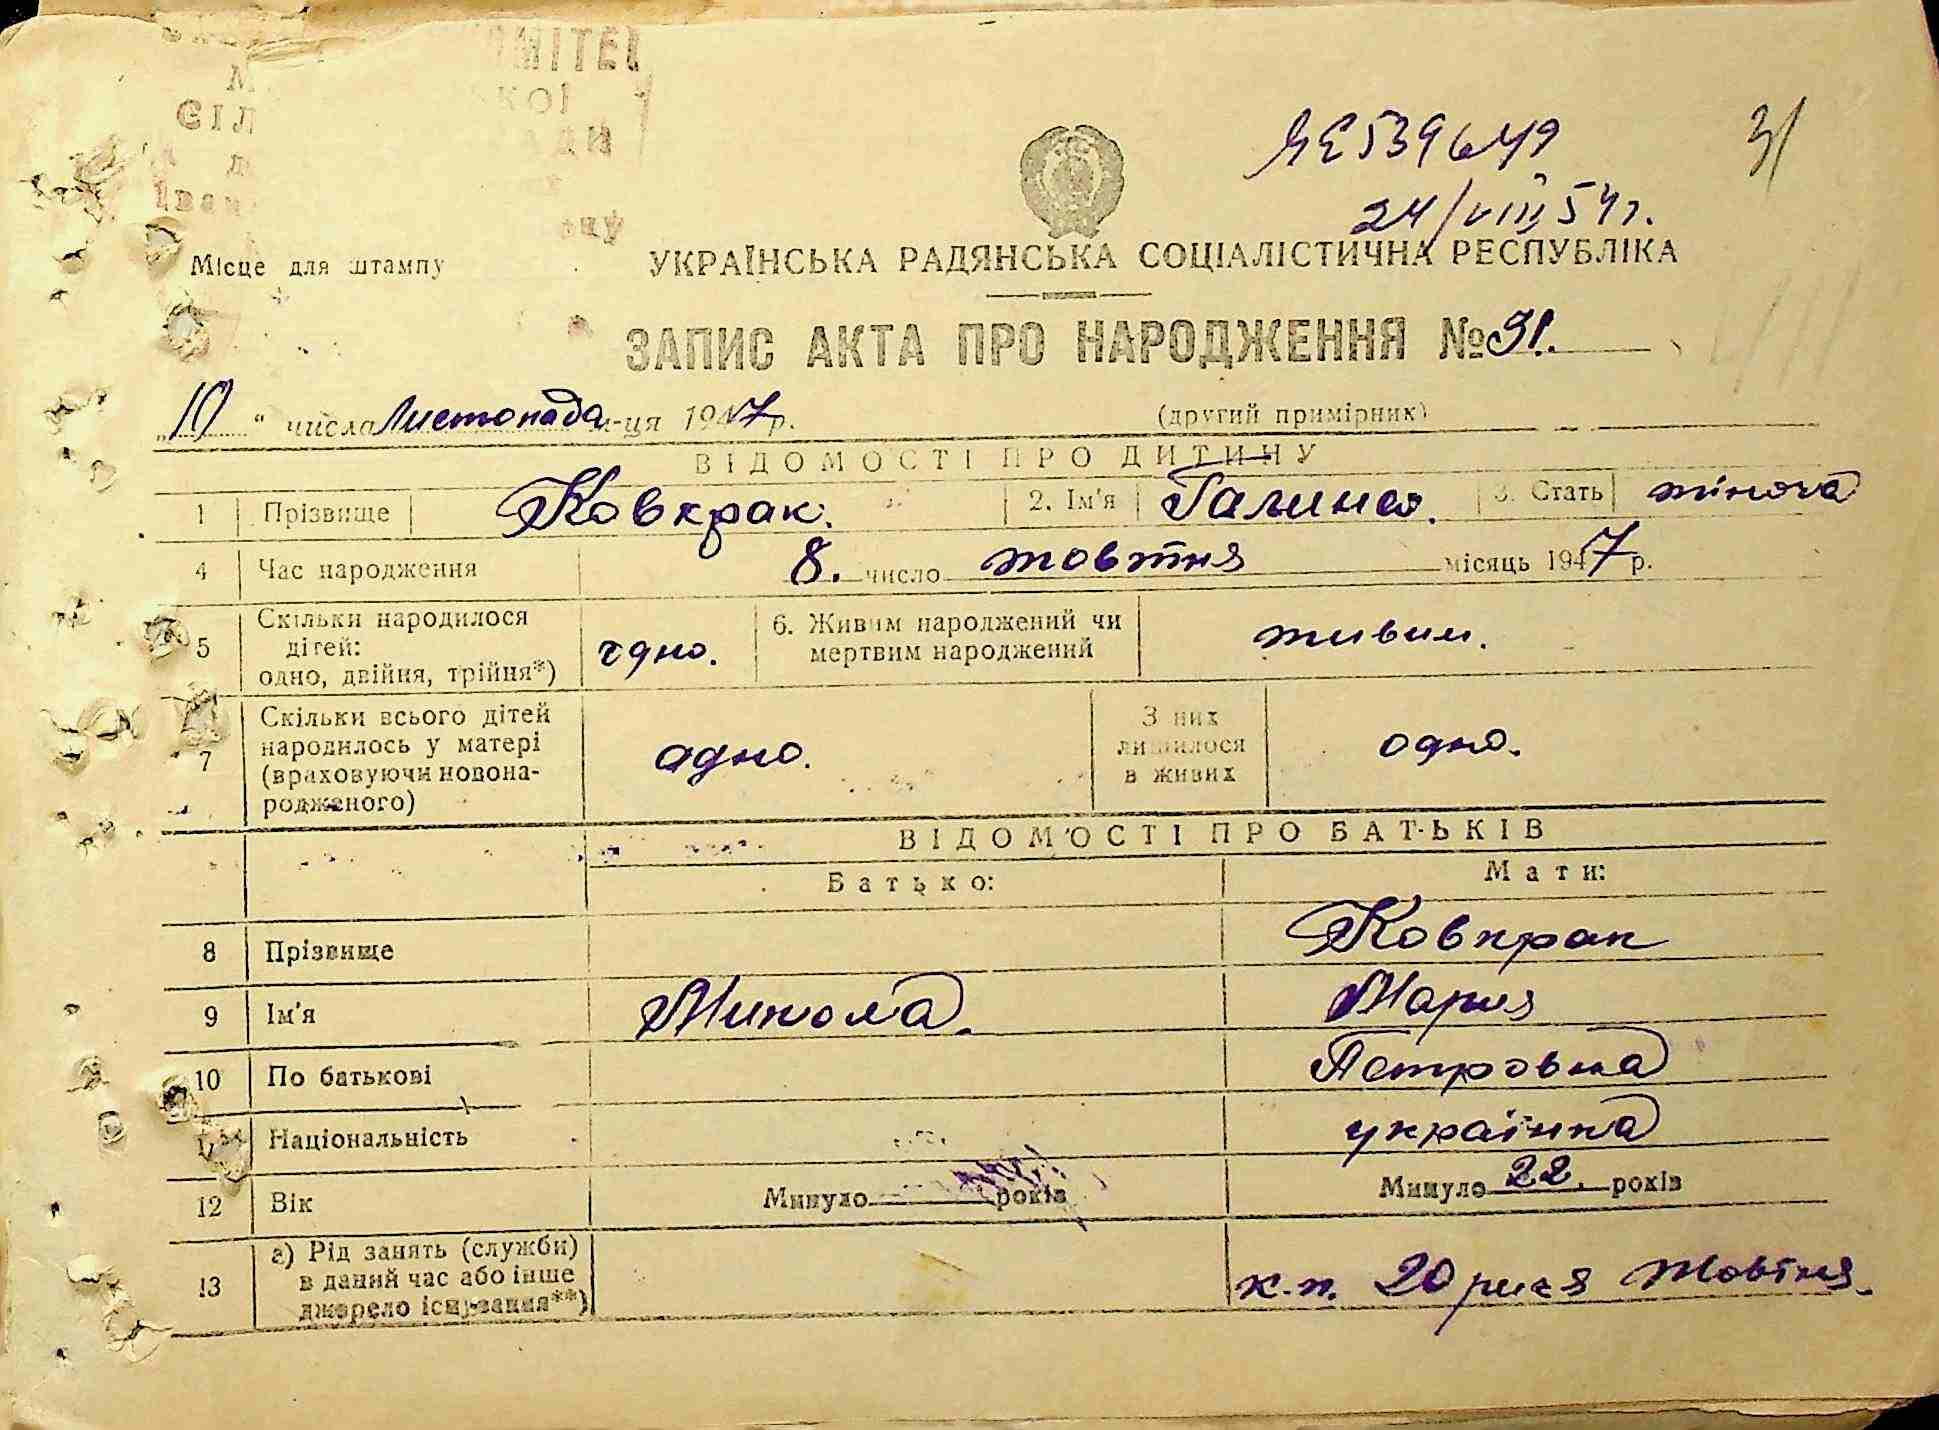 МІТЕТ
М КОЇ
СІЛ АДИ
Іван ону
ЯЄ539649
31
24/VIII 54 г.
Місце для штампу
УКРАЇНСЬКА РАДЯНСЬКА СОЦІАЛІСТИЧНА РЕСПУБЛІКА
ЗАПИС АКТА ПРО НАРОДЖЕННЯ № 31.
„10“ числа Листопада м-ця 1947 р. (другий примірник)
ВІДОМОСТІ ПРО ДИТИНУ
1 Прізвище Ковкрак. 2. Ім'я Галина. 3. Стать жіноча
4 Час народження 8. число жовтня місяць 1947 р.
5 Скільки народилося дітей: одно, двійня, трійня*) одно. 6. Живим народжений чи мертвим народжений живим.
7 Скільки всього дітей народилось у матері (враховуючи новонародженого) одно. З них лишилося в живих одно.
ВІДОМОСТІ ПРО БАТЬКІВ
Батько: Мати:
8 Прізвище Ковкрак
9 Ім'я Микола. Мария
10 По батькові Петровна
11 Національність українка
12 Вік Минуло років Минуло 22. років
13 а) Рід занять (служби) в даний час або інше джерело існування**) к-п. 20 річя Жовтня.